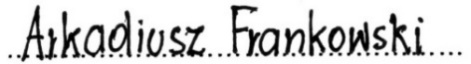 Arkadiusz Frankowski